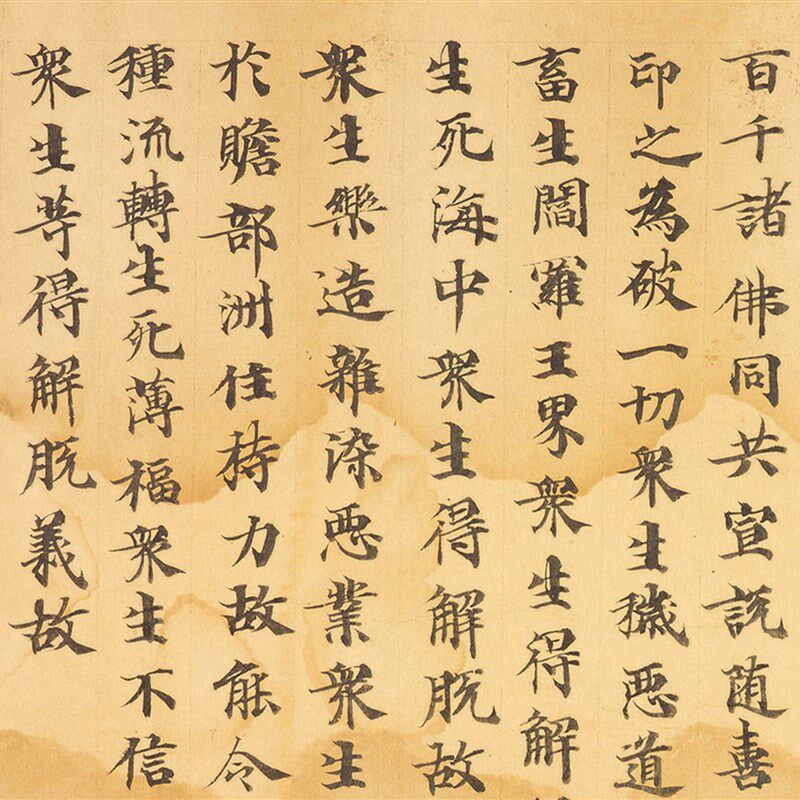 百千諸佛同共宣説随喜
印之為破一切衆生穢惡道
畜生閻羅王界衆生得解
生死海中衆生得解脱故
衆生樂造雜染惡業衆生
於贍部洲住持力故能令
種流轉生死薄福衆生不信
衆生等得解脱義故